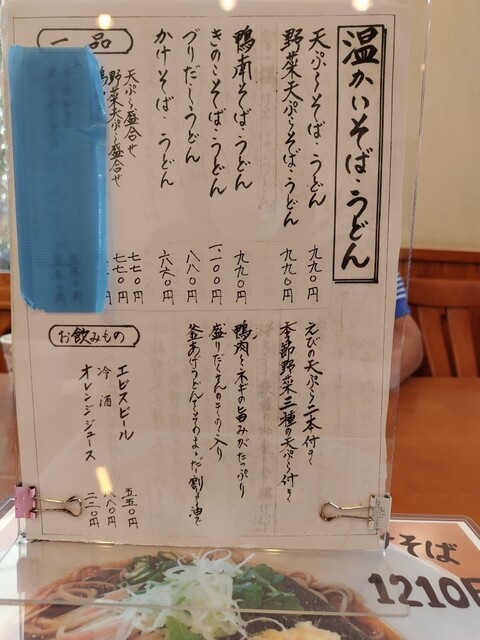 温かいそば・うどん
天ぷらそば・うどん 九九〇円
えびの天ぷら二本付き
野菜天ぷらそば・うどん 九九〇円
本季節野菜三種の天ぷら付き
鴨南そば・うどん 九九〇円
鴨肉とネギの旨みがたっぷり
きのこそば・うどん 一一〇〇円
盛りだくさんのきのこ入り
づりだしうどん 八八〇円
釜あげうどんを
かけそば・うどん 六六〇円
一品
天ぷら盛合せ 七七〇円
野菜天ぷら盛合せ 七七〇円
お飲みもの
エビスビール 五五〇円
冷酒 八八〇円
オレンジジュース 二二〇円
そば
1210円